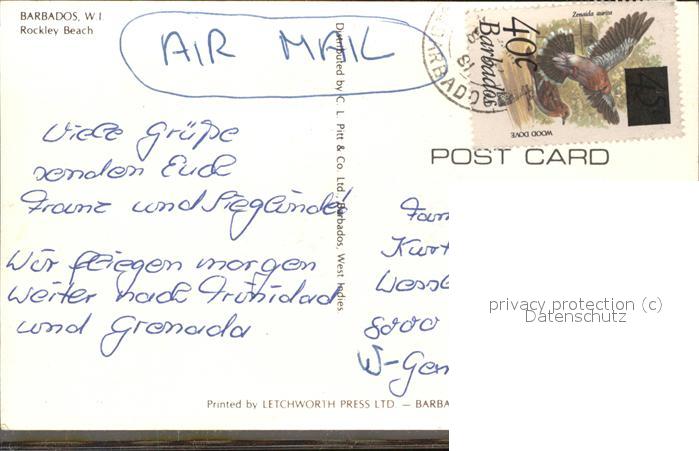 BARBADOS, W.I.
Rockley Beach
AIR MAIL
Viele Grüße
senden Euch
Franz und Sieglinde!
Wir fliegen morgen
weiter nach Trinidad
und Grenada
Distributed by C. L. Pitt & Co. Ltd., Barbados, West Indies
Zenaida aurita
40c
Barbados
45c
WOOD DOVE
POST CARD
Fam
Kurt
8000
W-Gen
privacy protection (c)
Datenschutz
Printed by LETCHWORTH PRESS LTD. — BARBA